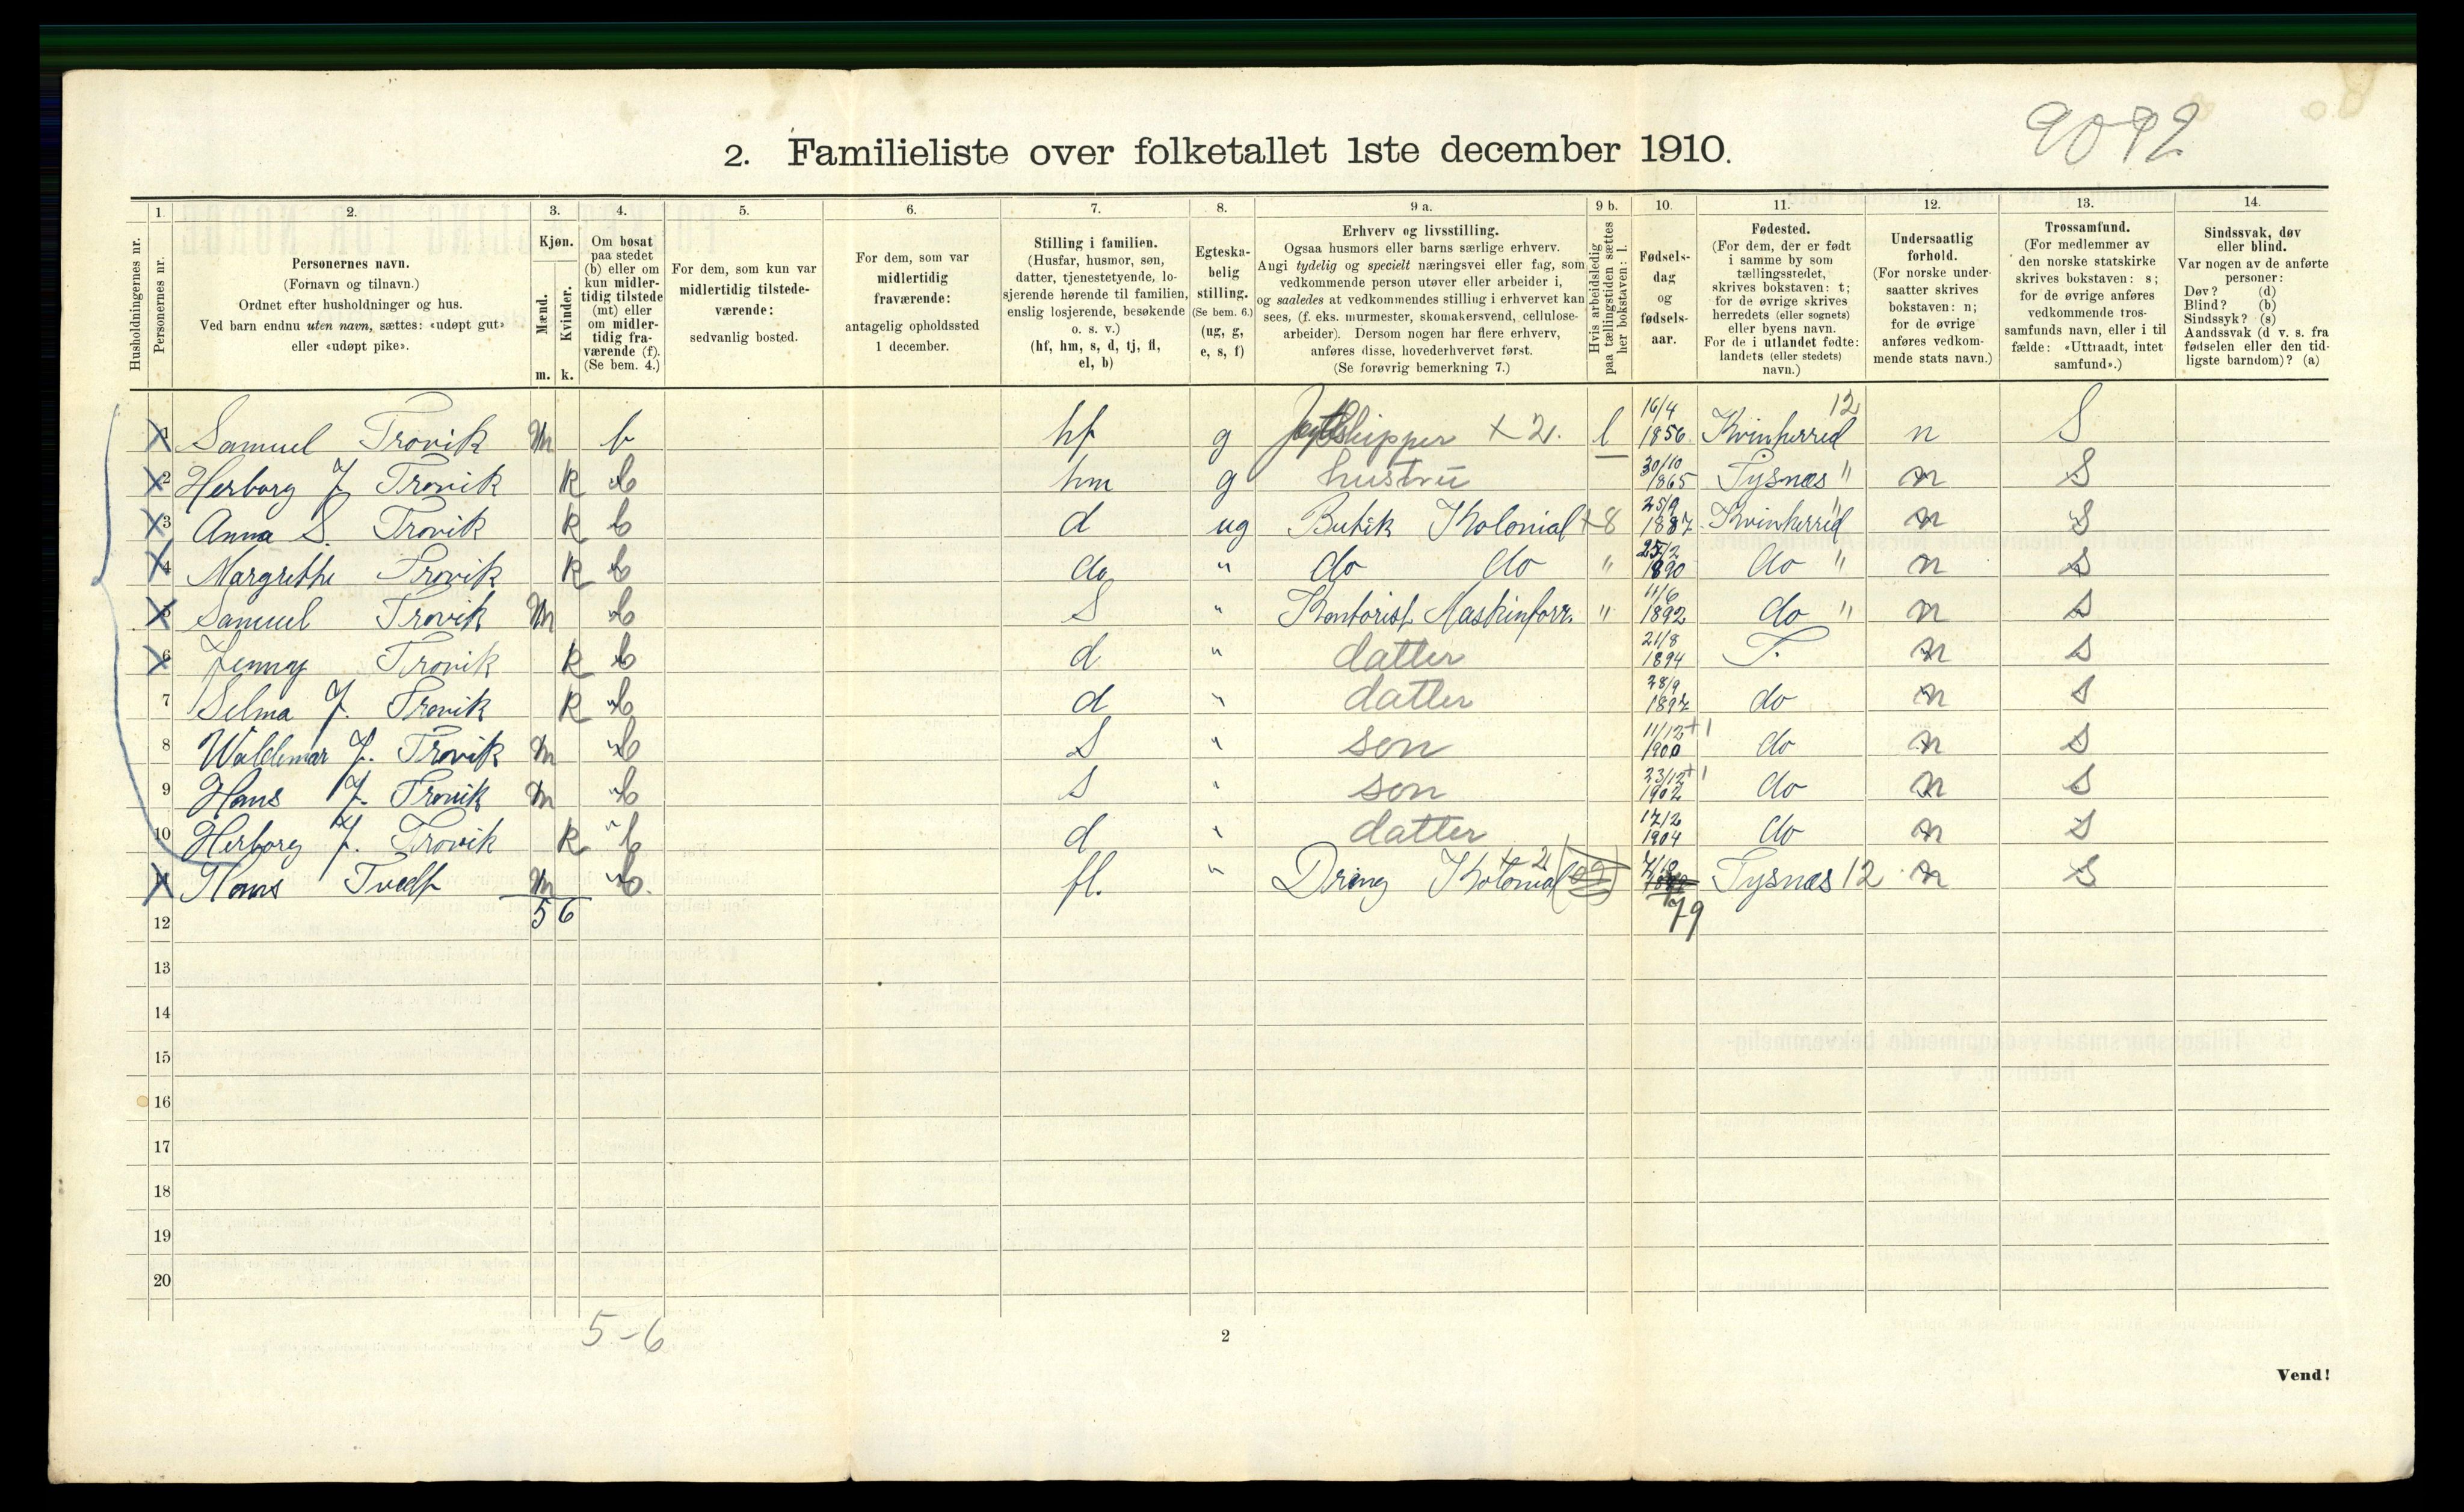 9092
2. Familieliste over folketallet 1ste december 1910.
1. 2. 3. 4. 5. 6. 7. 8. 9 a. 9 b. 10. 11. 12. 13. 14.
Husholdningernes nr.
Personernes nr.
Personernes navn.
(Fornavn og tilnavn.)
Ordnet efter husholdninger og hus.
Ved barn endnu uten navn, sættes: «udøpt gut»
eller «udøpt pike».
Kjøn.
Mænd.
Kvinder.
m. k.
Om bosat
paa stedet
(b) eller om
kun midler-
tidig tilstede
(mt) eller
om midler-
tidig fra-
værende (f).
(Se bem. 4.)
For dem, som kun var
midlertidig tilstede-
værende:
sedvanlig bosted.
For dem, som var
midlertidig
fraværende:
antagelig opholdssted
1 december.
Stilling i familien.
(Husfar, husmor, søn,
datter, tjenestetyende, lo-
sjerende hørende til familien,
enslig losjerende, besøkende
o. s. v.)
(hf, hm, s, d, tj, fl,
el, b)
Egteska-
belig
stilling.
(Se bem. 6.)
(ug, g,
e, s, f)
Erhverv og livsstilling.
Ogsaa husmors eller barns særlige erhverv.
Angi tydelig og specielt næringsvei eller fag, som
vedkommende person utøver eller arbeider i,
og saaledes at vedkommendes stilling i erhvervet kan
sees, (f. eks. murmester, skomakersvend, cellulose-
arbeider). Dersom nogen har flere erhverv,
anføres disse, hovederhvervet først.
(Se forøvrig bemerkning 7.)
Hvis arbeidsledig
paa tællingstiden sættes
her bokstaven: l.
Fødsels-
dag
og
fødsels-
aar.
Fødested.
(For dem, der er født
i samme by som
tællingsstedet,
skrives bokstaven: t;
for de øvrige skrives
herredets (eller sognets)
eller byens navn.
For de i utlandet fødte:
landets (eller stedets)
navn.)
Undersaatlig
forhold.
(For norske under-
saatter skrives
bokstaven: n;
for de øvrige
anføres vedkom-
mende stats navn.)
Trossamfund.
(For medlemmer av
den norske statskirke
skrives bokstaven: s;
for de øvrige anføres
vedkommende tros-
samfunds navn, eller i til
fælde: «Uttraadt, intet
samfund».)
Sindssvak, døv
eller blind.
Var nogen av de anførte
personer:
Døv? (d)
Blind? (b)
Sindssyk? (s)
Aandssvak (d v. s. fra
fødselen eller den tid-
ligste barndom)? (a)
1 Samuel Trovik m b hf g skipper + 2. l 16/4 1856 Kvinherred 12 n S
2 Herborg J Trovik k b hm g hustru 30/10 1865 Tysnæs " n S
3 Anna S. Trovik k b d ug Butik Kolonial + 8 25/9 1887 Kvinherred " n S
4 Margrethe Trovik k b do " do do " 25/2 1890 do " n S
5 Samuel Trovik m b S " Kontorist Maskinforr. " 11/6 1892 do " n S
6 Jenny Trovik k b d " datter 21/8 1894 T. n S
7 Selma J. Trovik k b d " datter 28/9 1897 do n S
8 Waldemar J. Trovik m b S " son 11/12 +1 1900 do n S
9 Hans J. Trovik m b S " son 23/12 +1 1902 do n S
10 Herborg J. Trovik k b d " datter 17/2 1904 do n S
11 Hans Tvedt m b. fl. " Dreng Kolonial + 2 79 Tysnæs 12 n S
12 5 6
13
14
15
16
17
18
19
20
5-6
2
Vend!